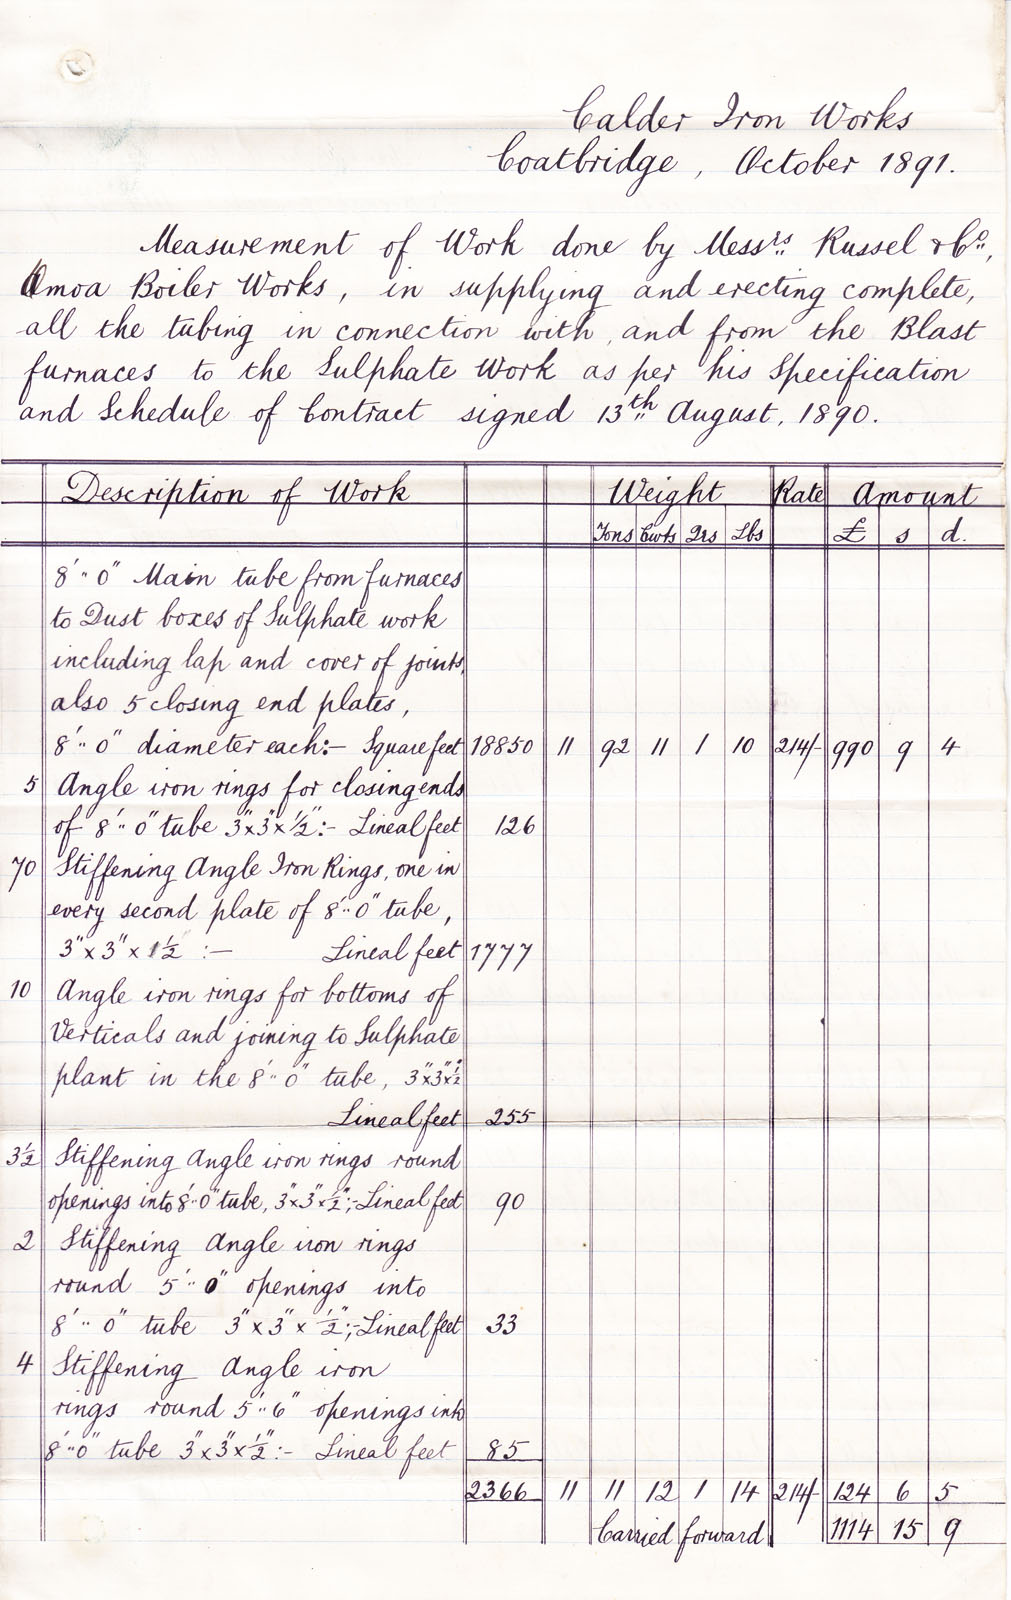 Calder Iron Works
Coatbridge, October 1891.
Measurement of Work done by Messrs. Russel & Co.,
Omoa Boiler Works, in supplying and erecting complete,
all the tubing in connection with, and from the Blast
furnaces to the Sulphate Work as per his Specification
and Schedule of Contract signed 13th August, 1890.
Description of Work Weight Rate Amount
Tons Cwts Qrs Lbs £ s d.
8'·0" Main tube from furnaces
to Dust boxes of Sulphate work
including lap and cover of joints,
also 5 closing end plates,
8'·0" diameter each:- Square feet 18850 11 92 11 1 10 214/- 990 9 4
5 Angle iron rings for closing ends
of 8'·0" tube 3"x3"x½":- Lineal feet 126
70 Stiffening Angle Iron Rings, one in
every second plate of 8'·0" tube,
3"x3"x1½ :- Lineal feet 1777
10 Angle iron rings for bottoms of
Verticals and joining to Sulphate
plant in the 8'·0" tube, 3"x3"x½"
Lineal feet 255
3½ Stiffening Angle iron rings round
openings into 8'·0" tube, 3"x3"x½";- Lineal feet 90
2 Stiffening Angle iron rings
round 5'·0" openings into
8'·0" tube 3"x3"x½";- Lineal feet 33
4 Stiffening Angle iron
rings round 5'·6" openings into
8'·0" tube 3"x3"x½":- Lineal feet 85
2366 11 11 12 1 14 214/- 124 6 5
Carried forward 1114 15 9